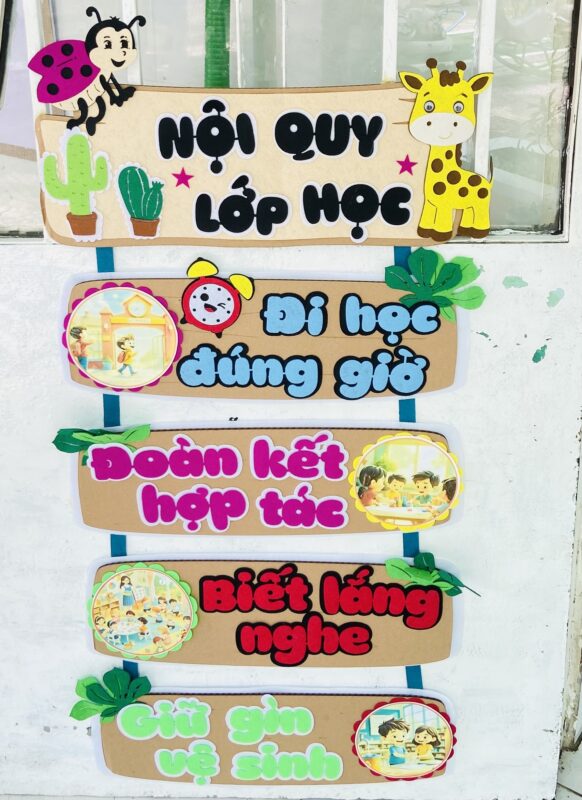 NỘI QUY
LỚP HỌC
Đi học
đúng giờ
Đoàn kết
hợp tác
Biết lắng
nghe
Giữ gìn
vệ sinh